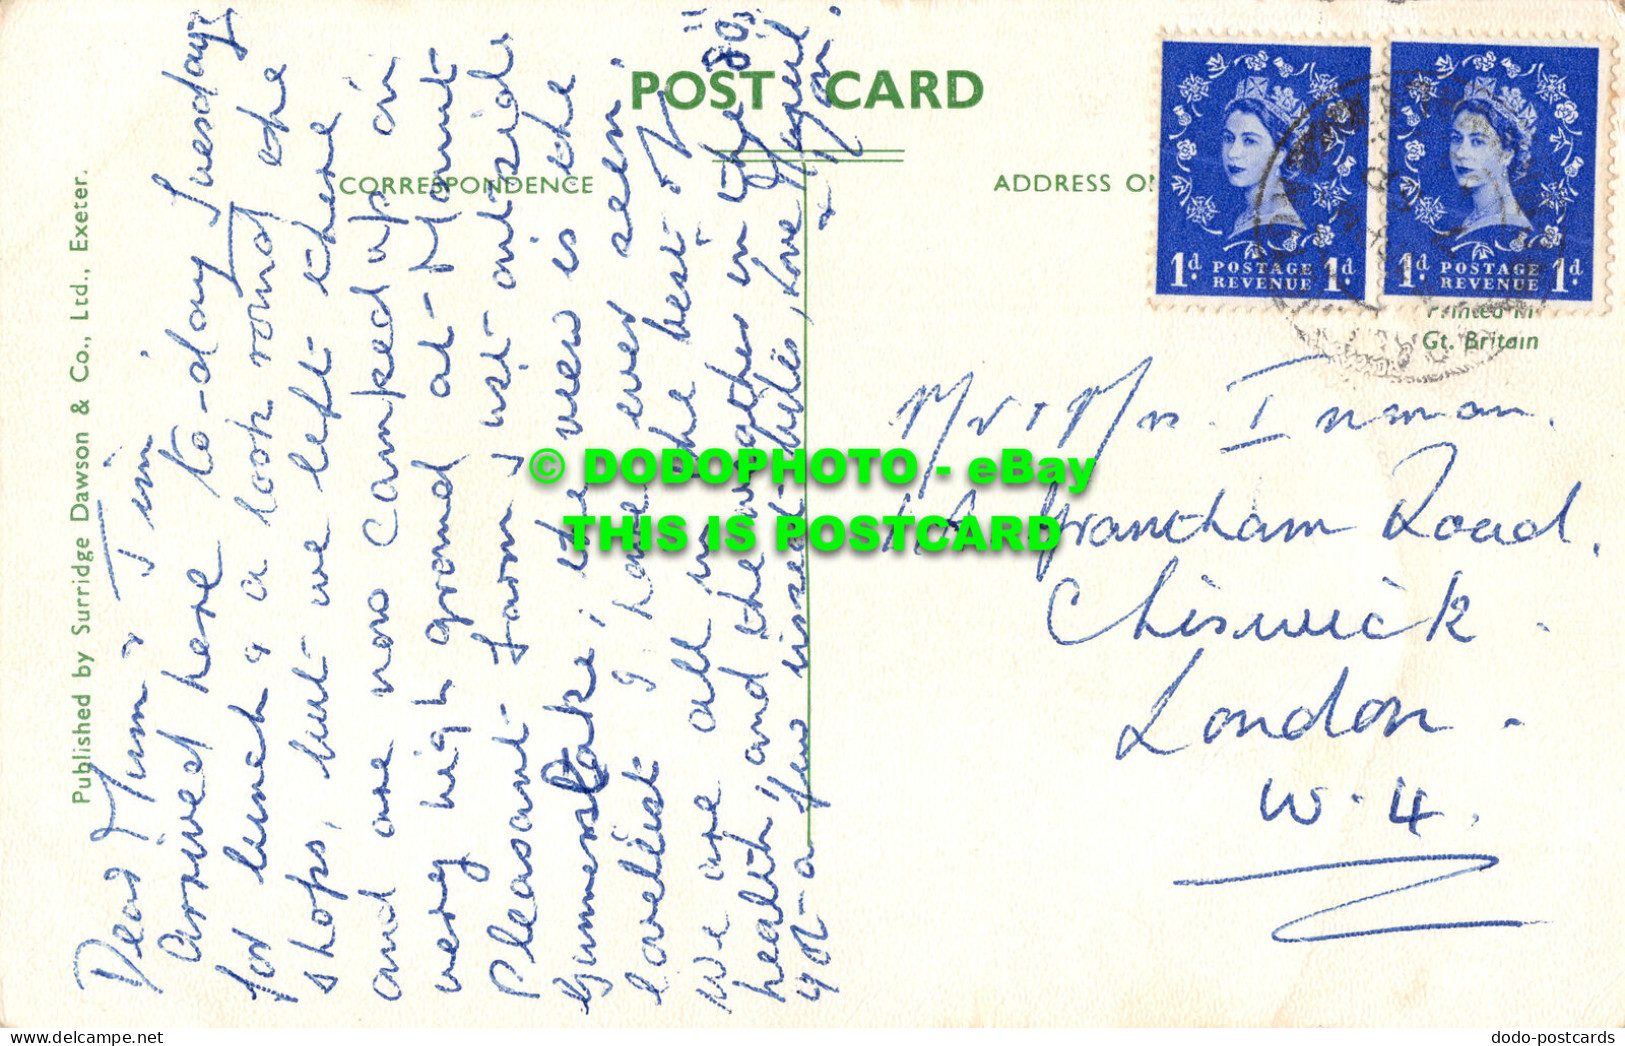 POST CARD
CORRESPONDENCE
ADDRESS ON
Published by Surridge Dawson & Co., Ltd., Exeter.
Printed in
Gt. Britain
1d. POSTAGE REVENUE 1d.
1d. POSTAGE REVENUE 1d.
Dear Mum & Jim
Arrived here to-day Tuesday
for lunch & a look round the
shops, but we left there
and are now camped up on
very high ground at Mount
Pleasant farm just outside
Gunnislake, the view is the
loveliest I have ever seen.
We are all in the best of
health, and the weather in the 80's
got a few insect bites, love
Mr & Mrs. Inman.
Grantham Road.
Chiswick.
London.
W.4.
© DODOPHOTO - eBay
THIS IS POSTCARD
delcampe.net
dodo-postcards